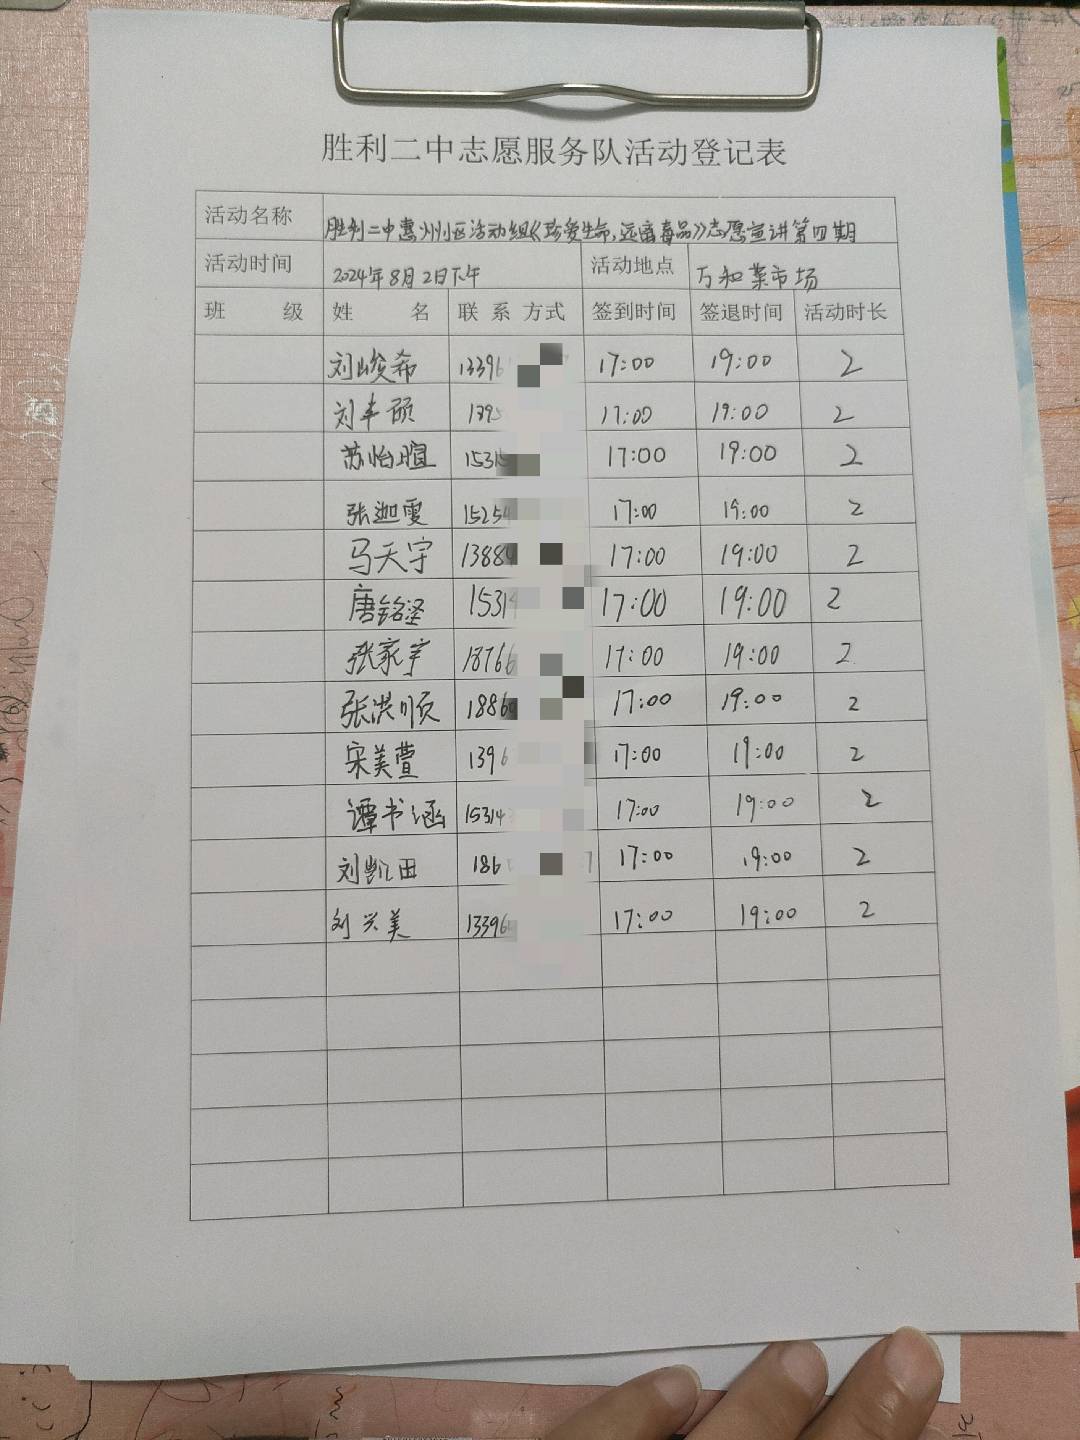 胜利二中志愿服务队活动登记表
活动名称 胜利二中惠州小区活动组《珍爱生命,远离毒品》志愿宣讲第四期
活动时间 2024年8月2日下午 活动地点 万和菜市场
班 级 姓 名 联 系 方式 签到时间 签退时间 活动时长
刘峻希 13396 17:00 19:00 2
刘丰硕 1395 17:00 19:00 2
苏怡暄 1531 17:00 19:00 2
张迦雯 15254 17:00 19:00 2
马天宇 13884 17:00 19:00 2
唐铭坚 1531 17:00 19:00 2
张家宇 18766 17:00 19:00 2
张洪顺 1886 17:00 19:00 2
宋美萱 1396 17:00 19:00 2
谭书涵 15314 17:00 19:00 2
刘凯田 186 17:00 19:00 2
刘兴美 13396 17:00 19:00 2